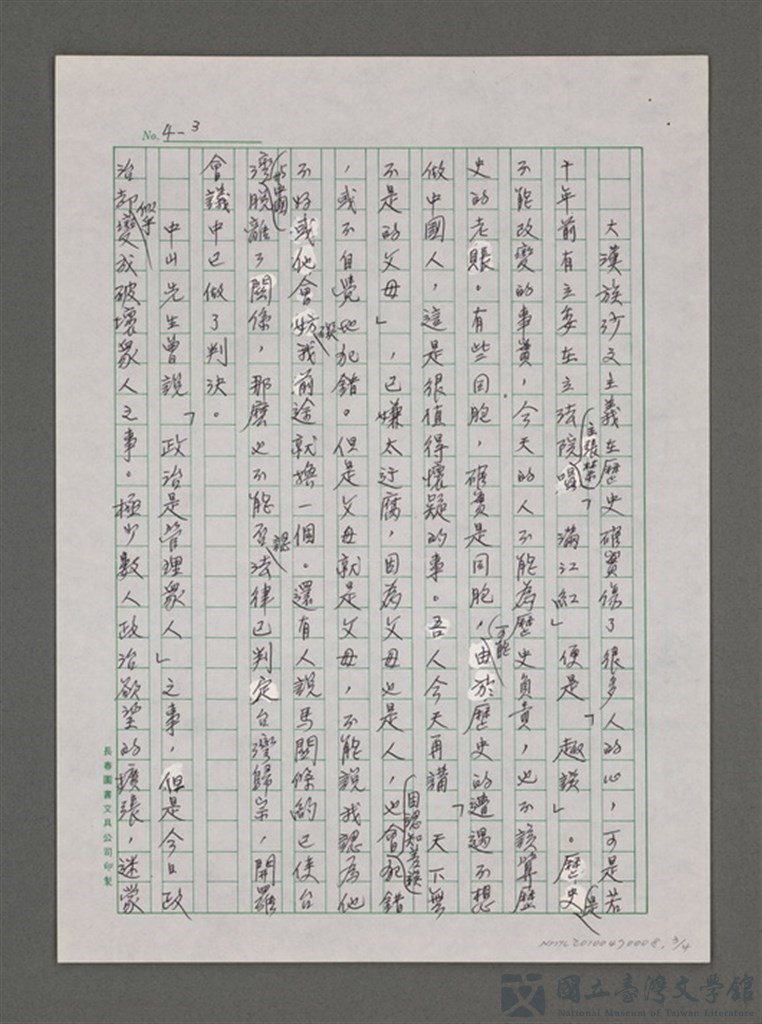 No. 4-3
大漢族沙文主義在歷史確實傷了很多人的心，可是若
干年前有立委在立法院主張禁唱「滿江紅」便是「趣談」。歷史是
不能改變的事實，今天的人不能為歷史負責，也不該算歷
史的老賬。有些同胞，確實是同胞，可能由於歷史的遭遇不想
做中國人，這是很值得懷疑的事。吾人今天再講「天下無
不是的父母」，已嫌太迂腐，因為父母也是人，也會因認知差誤犯錯
，或不自覺地犯錯。但是父母就是父母，不能說我認為他
不好或他會妨礙我前途就換一個。還有人說馬關條約已使台
灣與中國脫離了關係，那麼也不能否認法律已判定台灣歸宗，開羅
會議中已做了判決。
中山先生曾說「政治是管理眾人」之事，但是今日政
治卻似乎變成破壞眾人之事。極少數人政治欲望的擴張，迷蒙
長春圖書文具公司印製
NMTL20100470008, 3/4
國立臺灣文學館
National Museum of Taiwan Literature